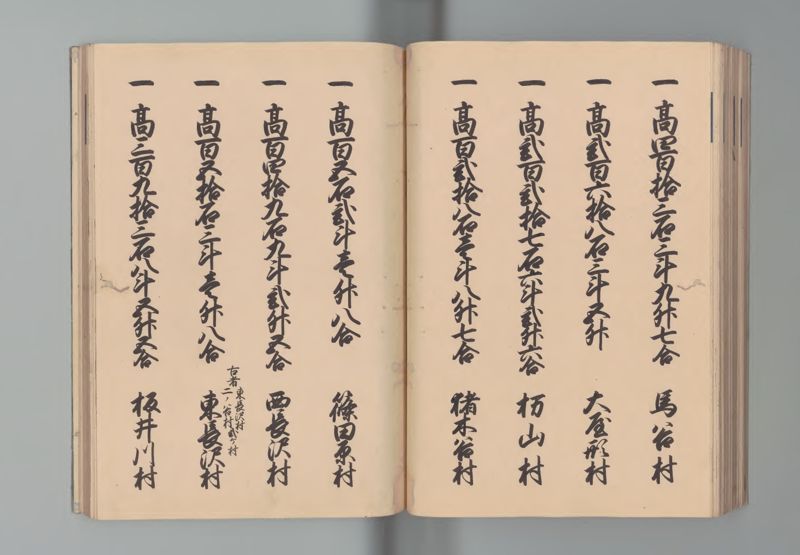 一 高四百拾三石三斗九升七合 馬谷村
一 高弐百六拾八石三斗五升 大屋形村
一 高弐百弐拾七石六斗弐升六合 枥山村
一 高百弐拾八石壱斗八升七合 猪木谷村
一 高百五石弐斗壱升八合 篠田原村
一 高百四拾九石九斗弐升五合 西長沢村
一 高百五拾石三斗壱升八合 東長沢村
古者 東長沢村
二ノ谷村弐ヶ村
一 高三百九拾三石八斗五升五合 板井川村